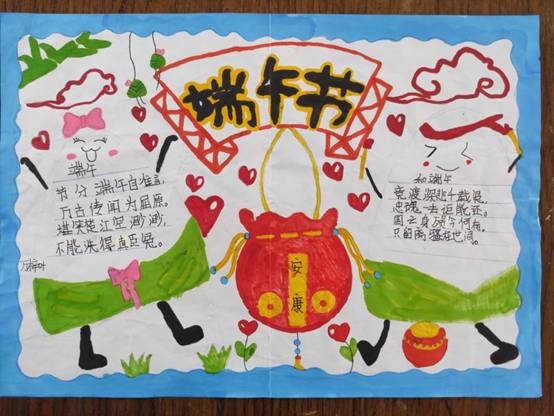 端午节
端午
节分端午自谁言,
万古传闻为屈原。
堪笑楚江空渺渺,
不能洗得直臣冤。
和端午
竞渡深悲千载冤,
忠魂一去讵能还。
国亡身殒今何有,
只留离骚在世间。
安
康